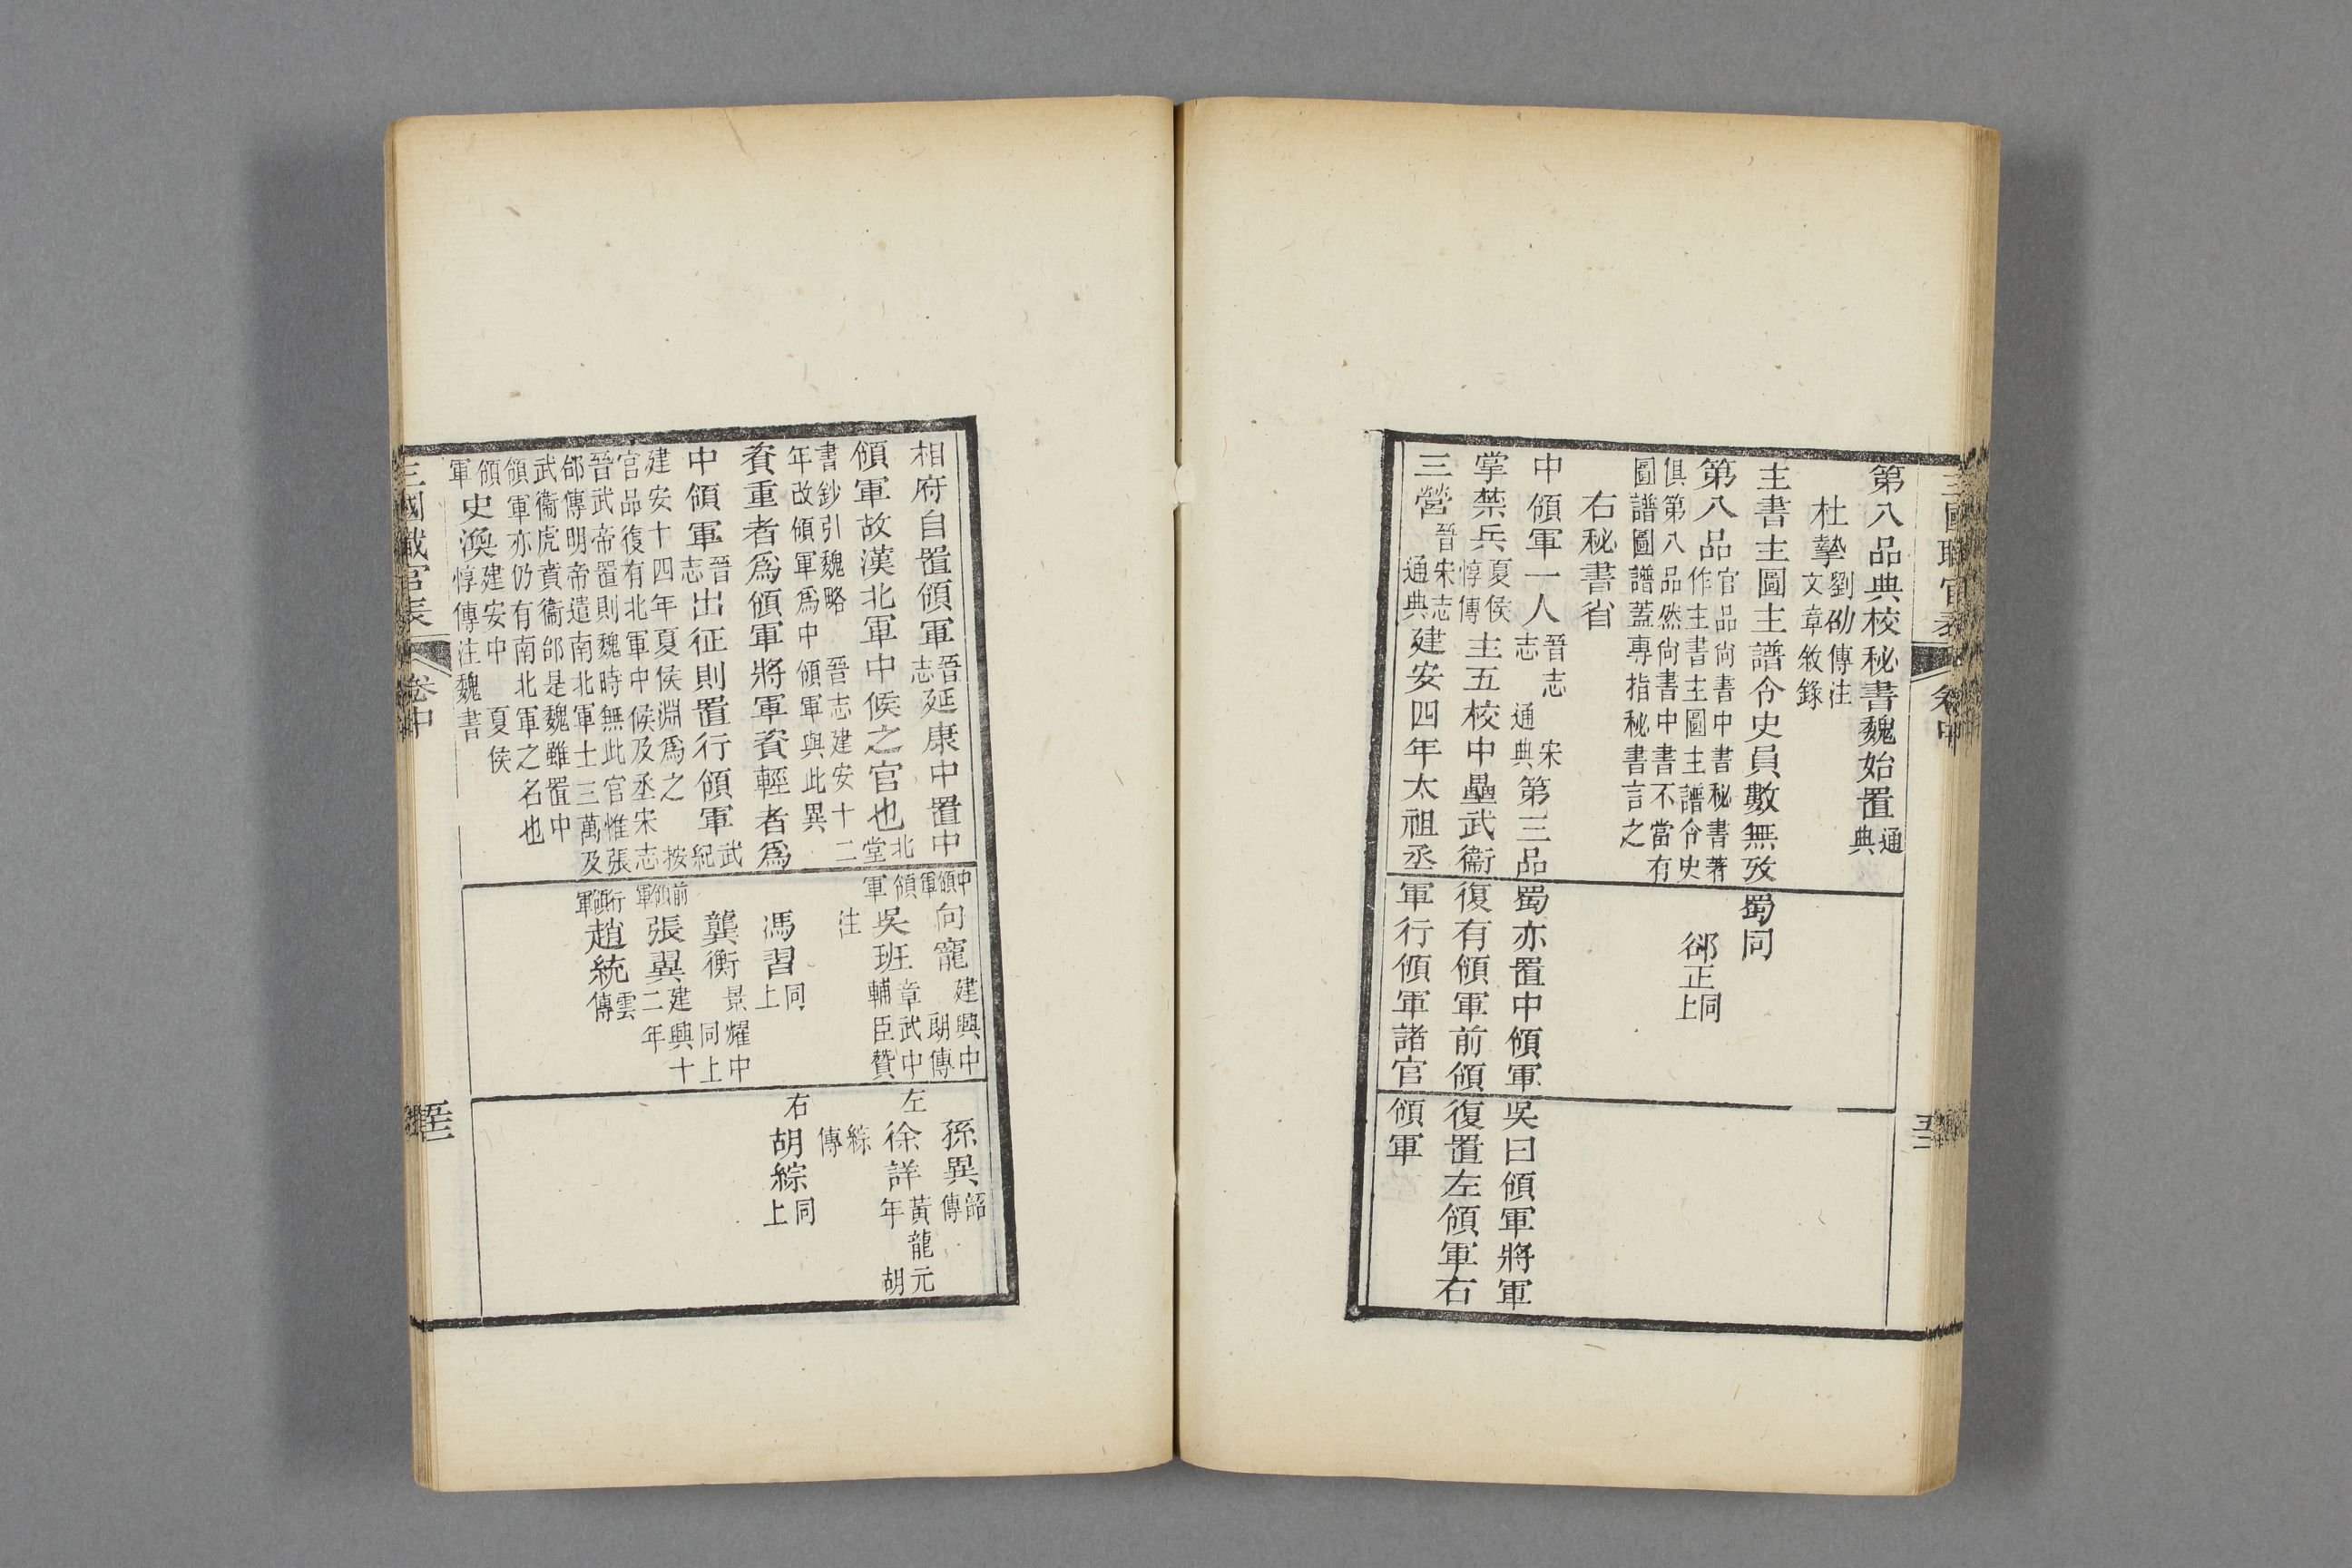 三國職官表 卷中
第八品典校秘書魏始置通典
杜摯劉劭傳注文章敘錄
主書主圖主譜令史員數無攷
第八品官品尚書中書秘書著作主書主圖主譜令史
俱第八品然尚書中書不當有圖譜圖譜蓋專指秘書言之
右秘書省
中領軍一人晉志 宋志 通典第三品
掌禁兵夏侯惇傳主五校中壘武衞
三營晉宋志通典建安四年太祖丞
蜀同
郤正同上
蜀亦置中領軍
復有領軍前領
軍行領軍諸官
吳曰領軍將軍
復置左領軍右
領軍
相府自置領軍晉志延康中置中
領軍故漢北軍中候之官也北堂
書鈔引魏略 晉志建安十二年改領軍爲中領軍與此異
資重者爲領軍將軍資輕者爲
中領軍晉志出征則置行領軍武紀
建安十四年夏侯淵爲之 按
官品復有北軍中候及丞宋志
晉武帝置則魏時無此官惟張
郃傳明帝遣南北軍士三萬及
武衞虎賁衞郃是魏雖置中
領軍亦仍有南北軍之名也
領軍史渙建安中 夏侯惇傳注魏書
中領軍向寵建興中 朗傳
領軍吳班章武中 輔臣贊
注
馮習同上
龔衡景耀中 同上
前領軍張翼建興十二年
行領軍趙統雲傳
孫異韶傳
左徐詳黃龍元年 胡
綜傳
右胡綜同上
三國職官表 卷中